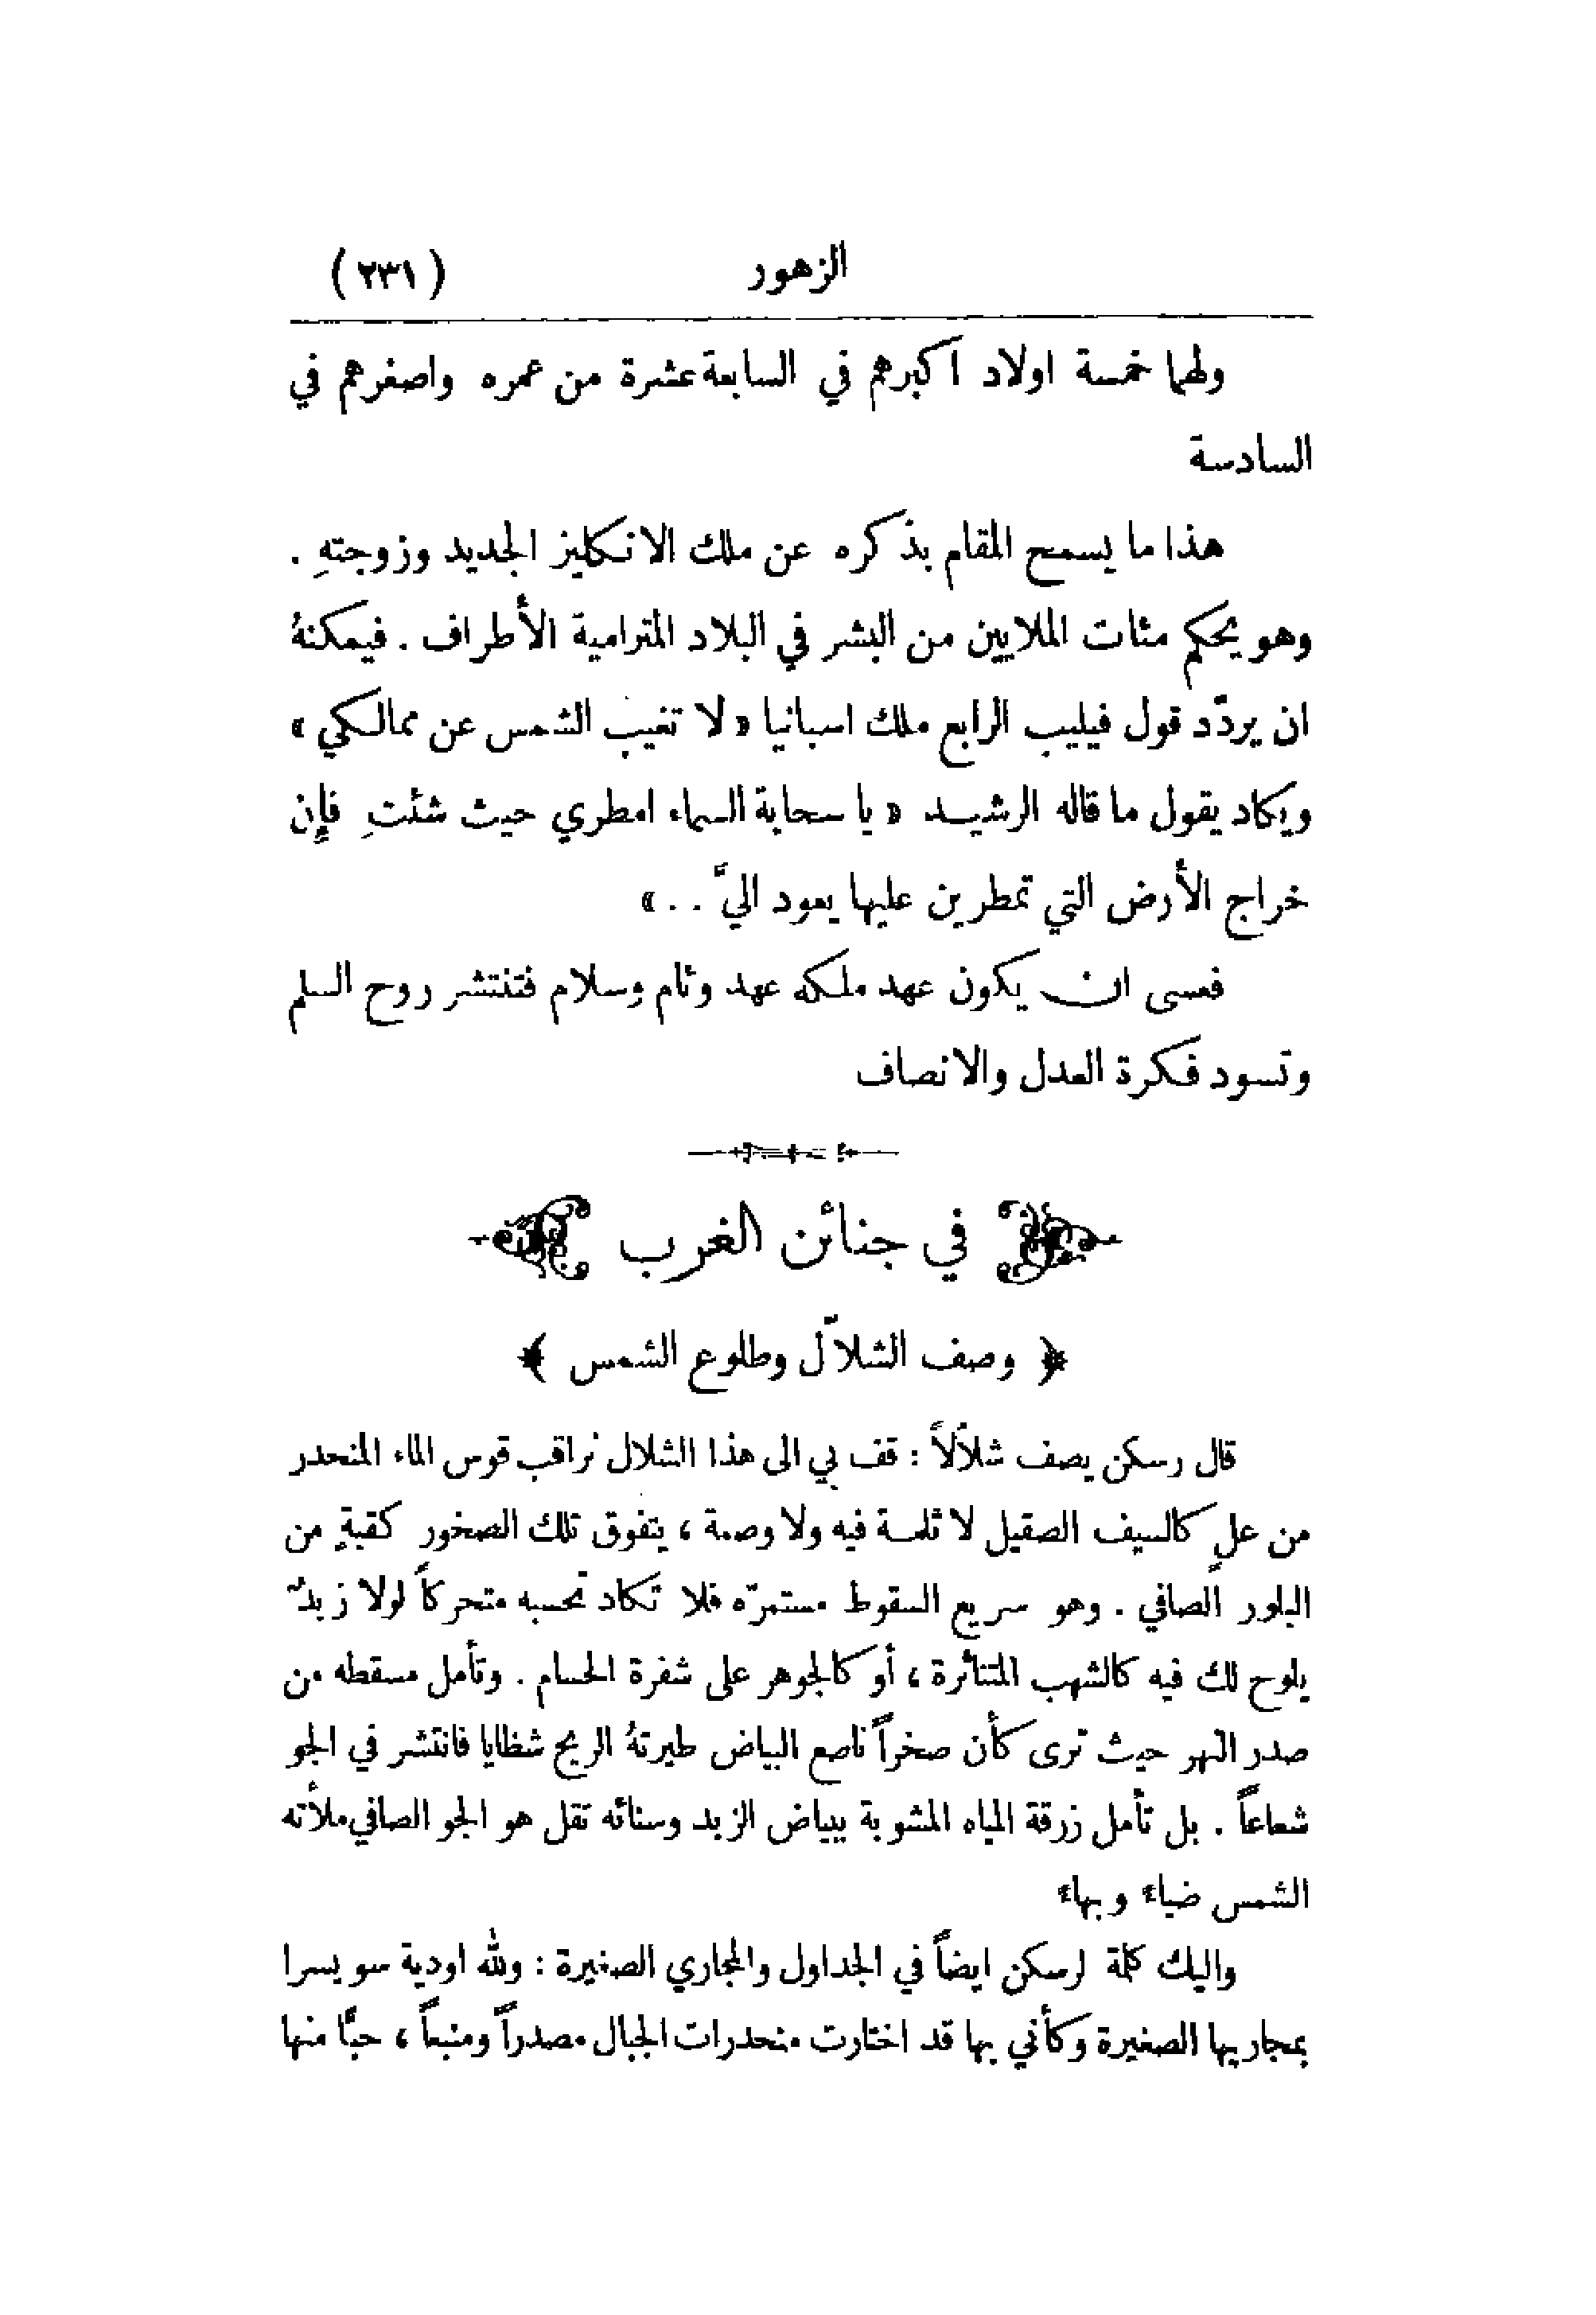 الزهور (٢٣١)
ولهما خمسة اولاد اكبرهم في السابعة عشرة من عمره واصغرهم في
السادسة
هذا ما يسمح المقام بذكره عن ملك الانكليز الجديد وزوجتهِ .
وهو يحكم مئات الملايين من البشر في البلاد المترامية الأطراف . فيمكنهُ
ان يردّد قول فيليب الرابع ملك اسبانيا « لا تغيب الشمس عن ممالكي »
ويكاد يقول ما قاله الرشيد « يا سحابة السماء امطري حيث شئتِ فإن
خراج الأرض التي تمطرين عليها يعود اليَّ . . »
فعسى ان يكون عهد ملكه عهد وئام وسلام فتنتشر روح السلم
وتسود فكرة العدل والانصاف
في جنائن الغرب
﴿ وصف الشلاّل وطلوع الشمس ﴾
قال رسكن يصف شلاّلاً : قف بي الى هذا الشلال نراقب قوس الماء المنحدر
من علٍ كالسيف الصقيل لا ثلمة فيه ولا وصمة ، يتفوق تلك الصخور كقبةٍ من
البلور الصافي . وهو سريع السقوط مستمرّه فلا تكاد تحسبه متحركاً لولا زبدٌ
يلوح لك فيه كالشهب المتناثرة ، أو كالجوهر على شفرة الحسام . وتأمل مسقطه من
صدر النهر حيث ترى كأن صخراً ناصع البياض طيرتهُ الريح شظايا فانتشر في الجو
شعاعاً . بل تأمل زرقة المياه المشوبة ببياض الزبد وسنائه تقل هو الجو الصافي ملأته
الشمس ضياء وبهاء
واليك كلمة لرسكن ايضاً في الجداول والمجاري الصغيرة : ولله اودية سويسرا
بمجاريها الصغيرة وكأني بها قد اختارت منحدرات الجبال مصدراً ومنبعاً ، حبًّا منها